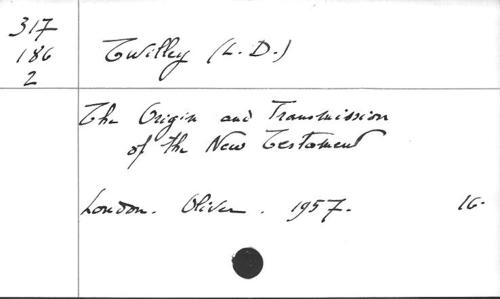 317
186
2
Twilley (L. D.)
The Origin and Transmission
of the New Testament
London. Oliver. 1957. 16.